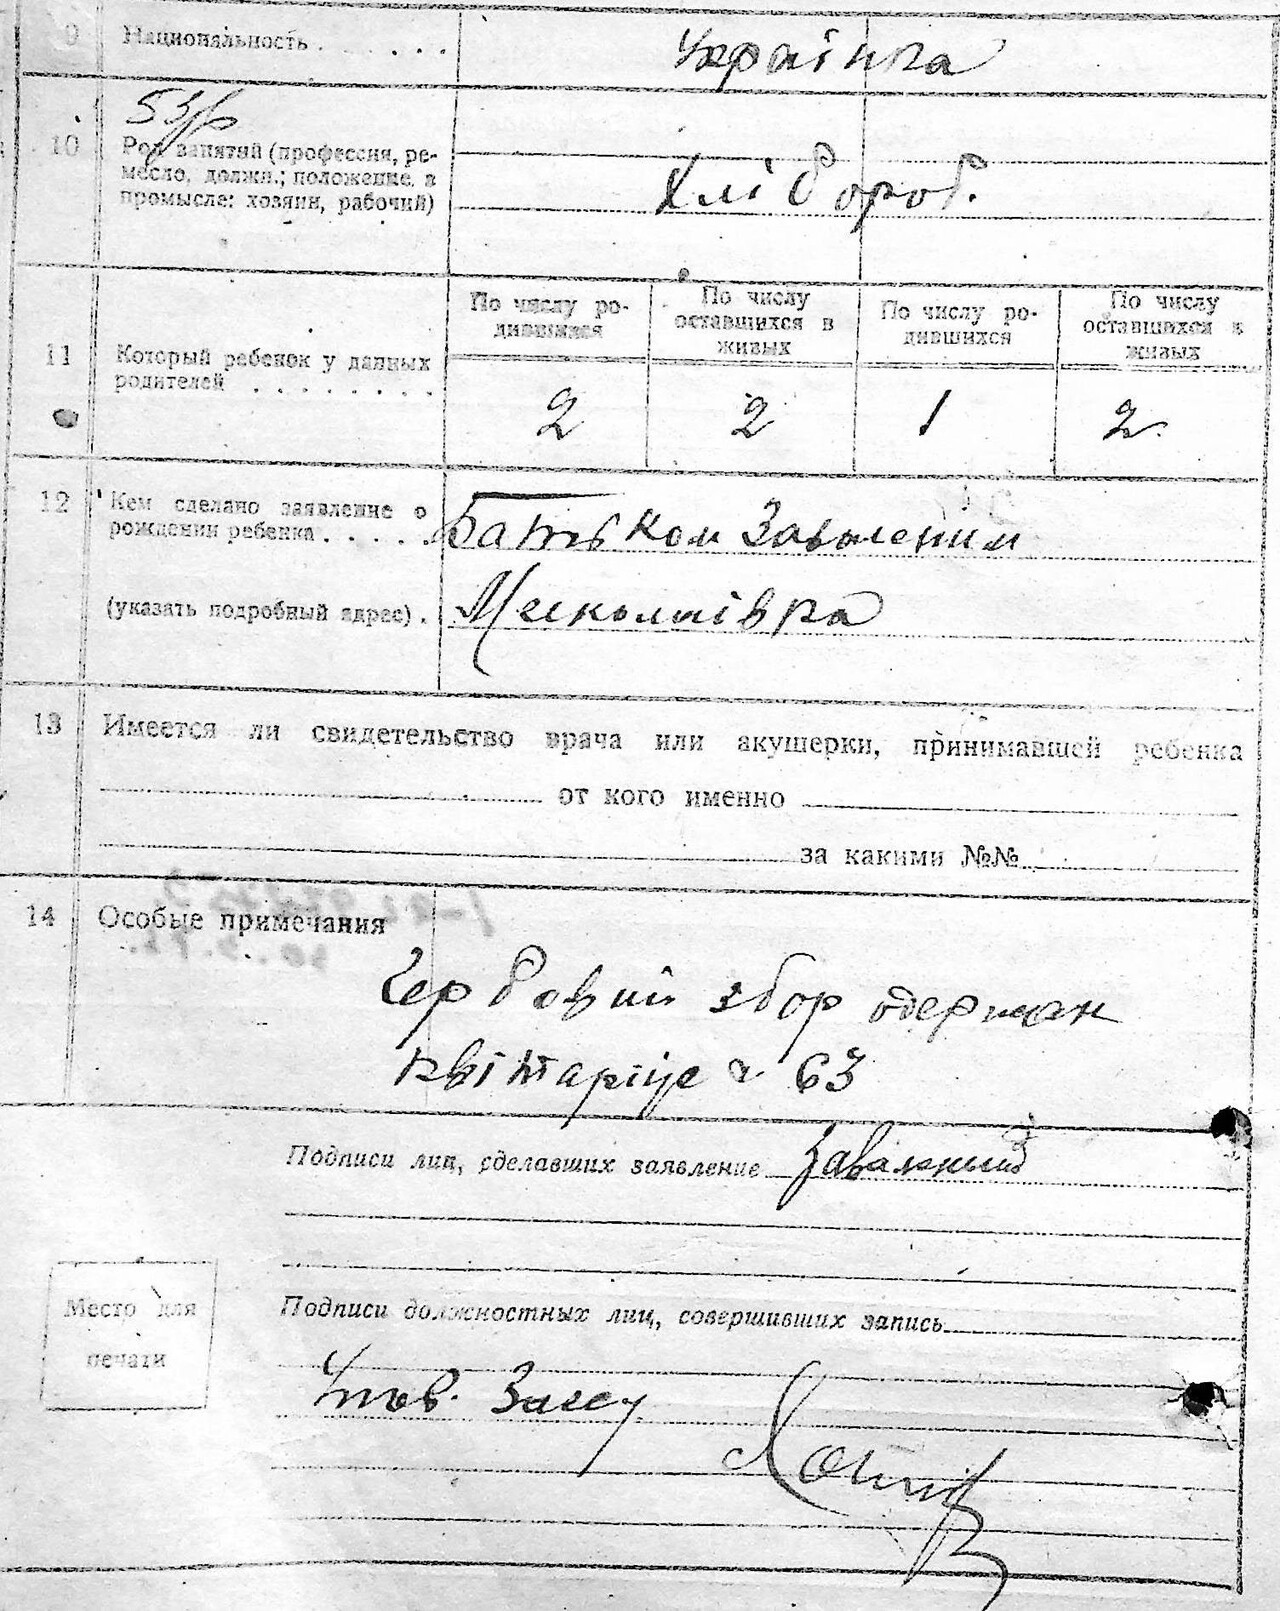 9 Национальность . . . . . . Українка
53
10 Род занятий (профессия, ре-
месло, должн.; положение в
промысле: хозяин, рабочий)
Хлібороб.
По числу ро-
дившихся
По числу
оставшихся в
живых
По числу ро-
дившихся
По числу
оставшихся в
живых
11 Который ребенок у данных
родителей . . . . . . . .
2 2 1 2
12 Кем сделано заявление о
рождении ребенка . . . . .
Батьком Заваленим
(указать подробный адрес) .
13 Имеется ли свидетельство врача или акушерки, принимавшей ребенка
от кого именно
за какими №№
14 Особые примечания
Гербовий збор одержан
квітанціє 63
Подписи лиц, сделавших заявление
Место для
печати
Подписи должностных лиц, совершивших запись
Загсу